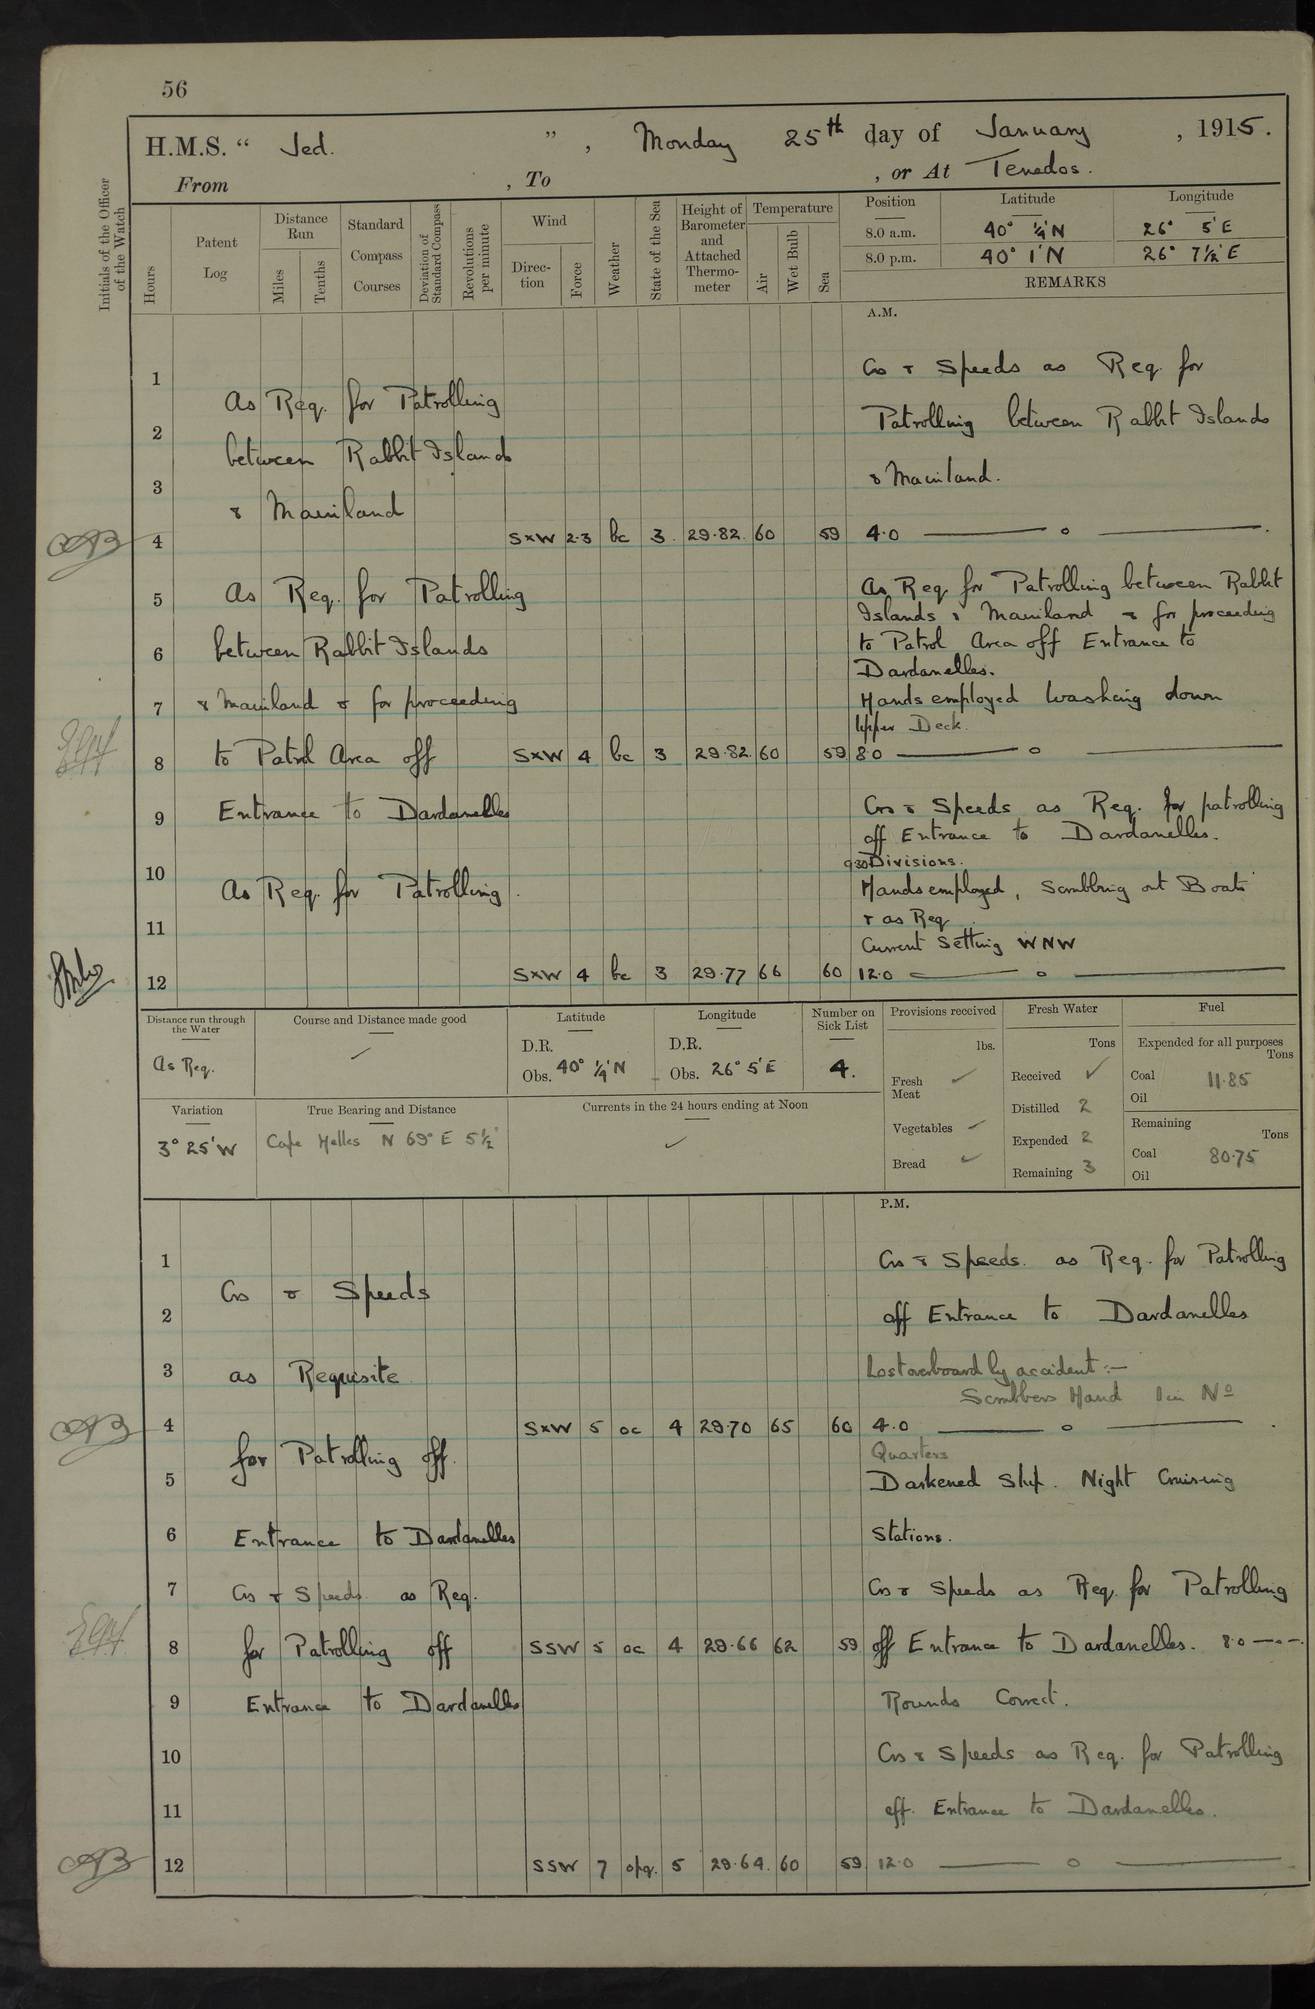 56
H.M.S. “ Jed. ” , Monday 25th day of January , 1915.
From , To , or At Tenedos.
Initials of the Officer of the Watch
Hours
Patent Log
Distance Run
Miles
Tenths
Standard Compass Courses
Deviation of Standard Compass
Revolutions per minute
Wind
Direction
Force
Weather
State of the Sea
Height of Barometer and Attached Thermometer
Temperature
Air
Wet Bulb
Sea
Position Latitude Longitude
8.0 a.m. 40° ¼'N 26° 5'E
8.0 p.m. 40° 1'N 26° 7½'E
REMARKS
A.M.
1 Cos & Speeds as Req. for
As Req. for Patrolling
2 Patrolling between Rabbit Islands
between Rabbit Islands
3 & Mainland.
& Mainland
4 SxW 2-3 bc 3 29.82 60 59 4.0 — o —
5 As Req. for Patrolling As Req for Patrolling between Rabbit
Islands & Mainland & for proceeding
6 between Rabbit Islands to Patrol Area off Entrance to
Dardanelles.
7 & Mainland & for proceeding Hands employed washing down
Upper Deck.
8 to Patrol Area off SxW 4 bc 3 29.82 60 59 8.0 — o —
9 Entrance to Dardanelles Cos & Speeds as Req. for patrolling
off Entrance to Dardanelles.
930 Divisions.
10 As Req. for Patrolling Hands employed, Scrubbing out Boats
& as Req
11 Current Setting WNW
12 SxW 4 bc 3 29.77 66 60 12.0 — o —
Distance run through the Water
As Req.
Course and Distance made good
✓
Latitude
D.R.
Obs. 40° ¼'N
Longitude
D.R.
Obs. 26° 5'E
Number on Sick List
4.
Provisions received
lbs.
Fresh Meat ✓
Vegetables ✓
Bread ✓
Fresh Water
Tons
Received ✓
Distilled 2
Expended 2
Remaining 3
Fuel
Expended for all purposes
Tons
Coal 11.85
Oil
Remaining
Tons
Coal 80.75
Oil
Variation
3° 25'W
True Bearing and Distance
Cape Helles N 69° E 5½'
Currents in the 24 hours ending at Noon
✓
P.M.
1 Cos & Speeds as Req. for Patrolling
Cos & Speeds
2 off Entrance to Dardanelles
3 as Requisite Lost overboard by accident :—
Scrubbers Hand 1 in No
4 SxW 5 oc 4 29.70 65 60 4.0 — o —
for Patrolling off Quarters
5 Darkened Ship. Night Cruising
6 Entrance to Dardanelles Stations.
7 Cos & Speeds as Req. Cos & Speeds as Req. for Patrolling
8 for Patrolling off SSW 5 oc 4 29.66 62 59 off Entrance to Dardanelles. 8.0 —o—
9 Entrance to Dardanelles Rounds Correct.
10 Cos & Speeds as Req. for Patrolling
11 off Entrance to Dardanelles.
12 SSW 7 opq. 5 29.64 60 59 12.0 — o —